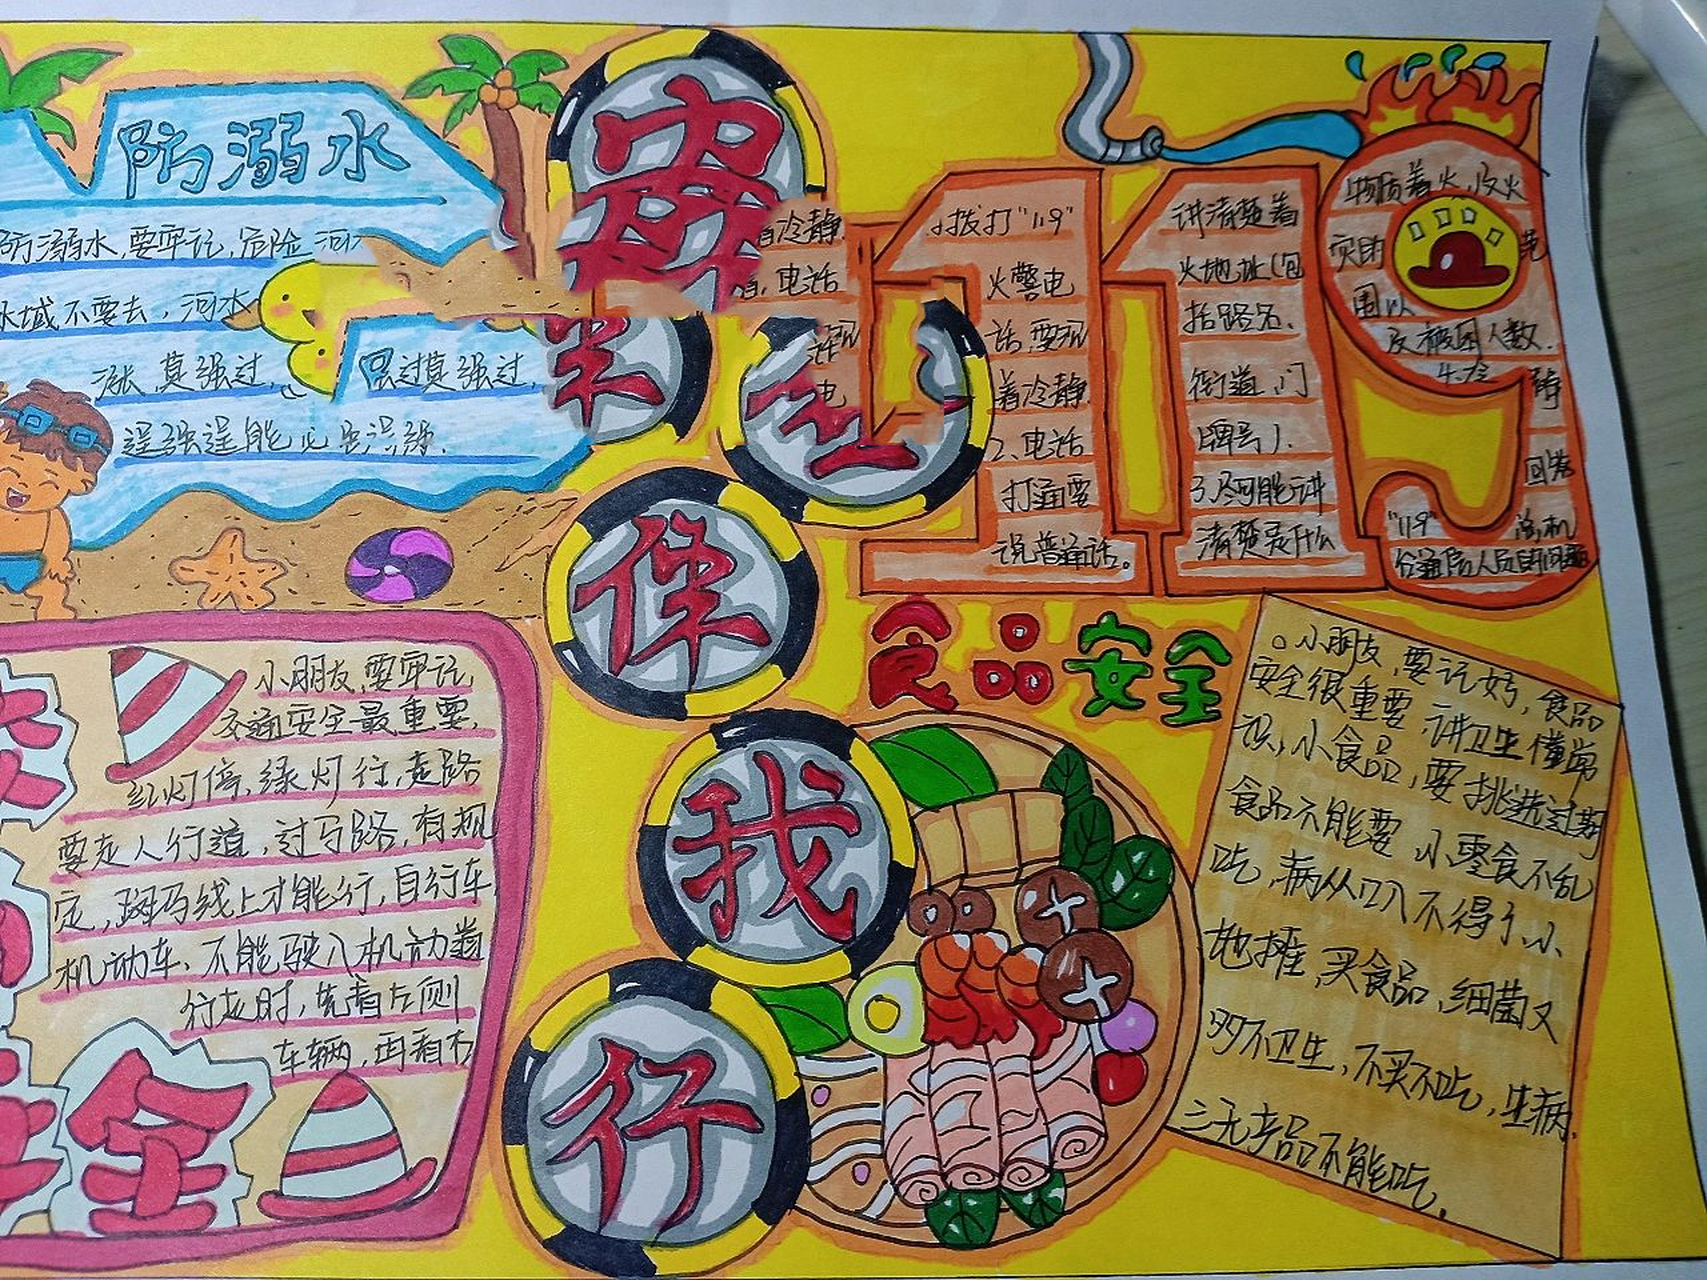 防溺水
防溺水,要牢记,危险河
水域不要去,河水
涨,莫强过,
逞强逞能必
安
全
伴
我
行
冷静
电话
1.拨打"119"
火警电
话,要沉
着冷静
2、电话
打通要
说普通话。
讲清楚着
火地址(包
括路名、
街道、门
牌号).
3.尽可能讲
清楚是什么
物质着火,及火
灾
范
围以
及被困人数.
回答
"119"
食品安全
。小朋友,要记好,食品
安全很重要,讲卫生懂常
识,小食品,要挑选过期
食品不能要,小零食不乱
吃,病从口入不得了.小
地摊,买食品,细菌又
多不卫生,不买不吃,生病.
三无产品不能吃.
小朋友,要牢记,
交通安全最重要,
红灯停,绿灯行,走路
要走人行道,过马路,有规
定,斑马线上才能行,自行车
机动车、不能驶入机动道
行走时,先看左侧
车辆,再看右
全